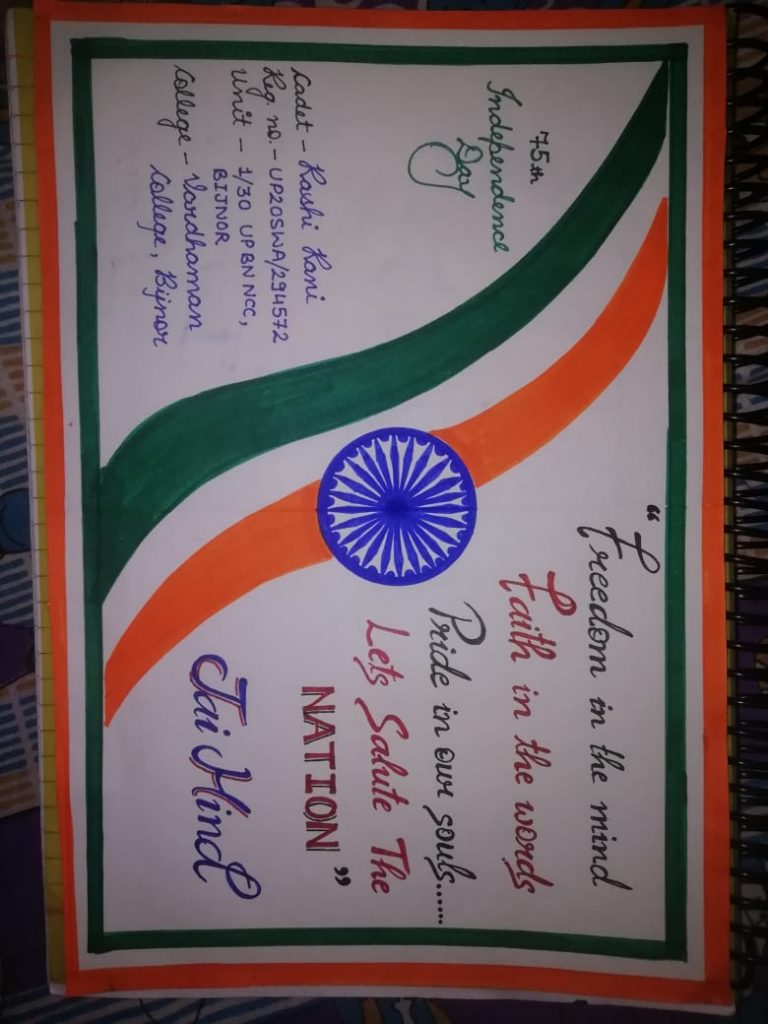 75th
Independence
Day
Cadet - Rashi Rani
Reg no. - UP20SWA/294572
Unit - 1/30 UP BN NCC,
BIJNOR
College - Vardhaman
College, Bijnor
“Freedom in the mind
Faith in the words
Pride in our souls......
Lets Salute The
NATION”
Jai Hind